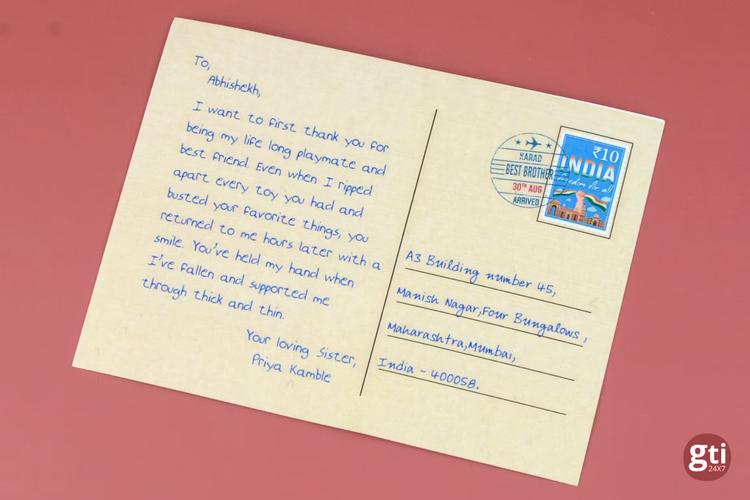 To,
Abhishekh,
I want to first thank you for
being my life long playmate and
best friend. Even when I ripped
apart every toy you had and
busted your favorite things, you
returned to me hours later with a
smile. You've held my hand when
I've fallen and supported me
through thick and thin.
Your loving Sister,
Priya Kamble
KARAD
BEST BROTHER
30TH AUG
ARRIVED
₹10
INDIA
freedom for all
A3 Building number 45,
Manish Nagar,Four Bungalows,
Maharashtra,Mumbai,
India - 400058.
gti
24X7